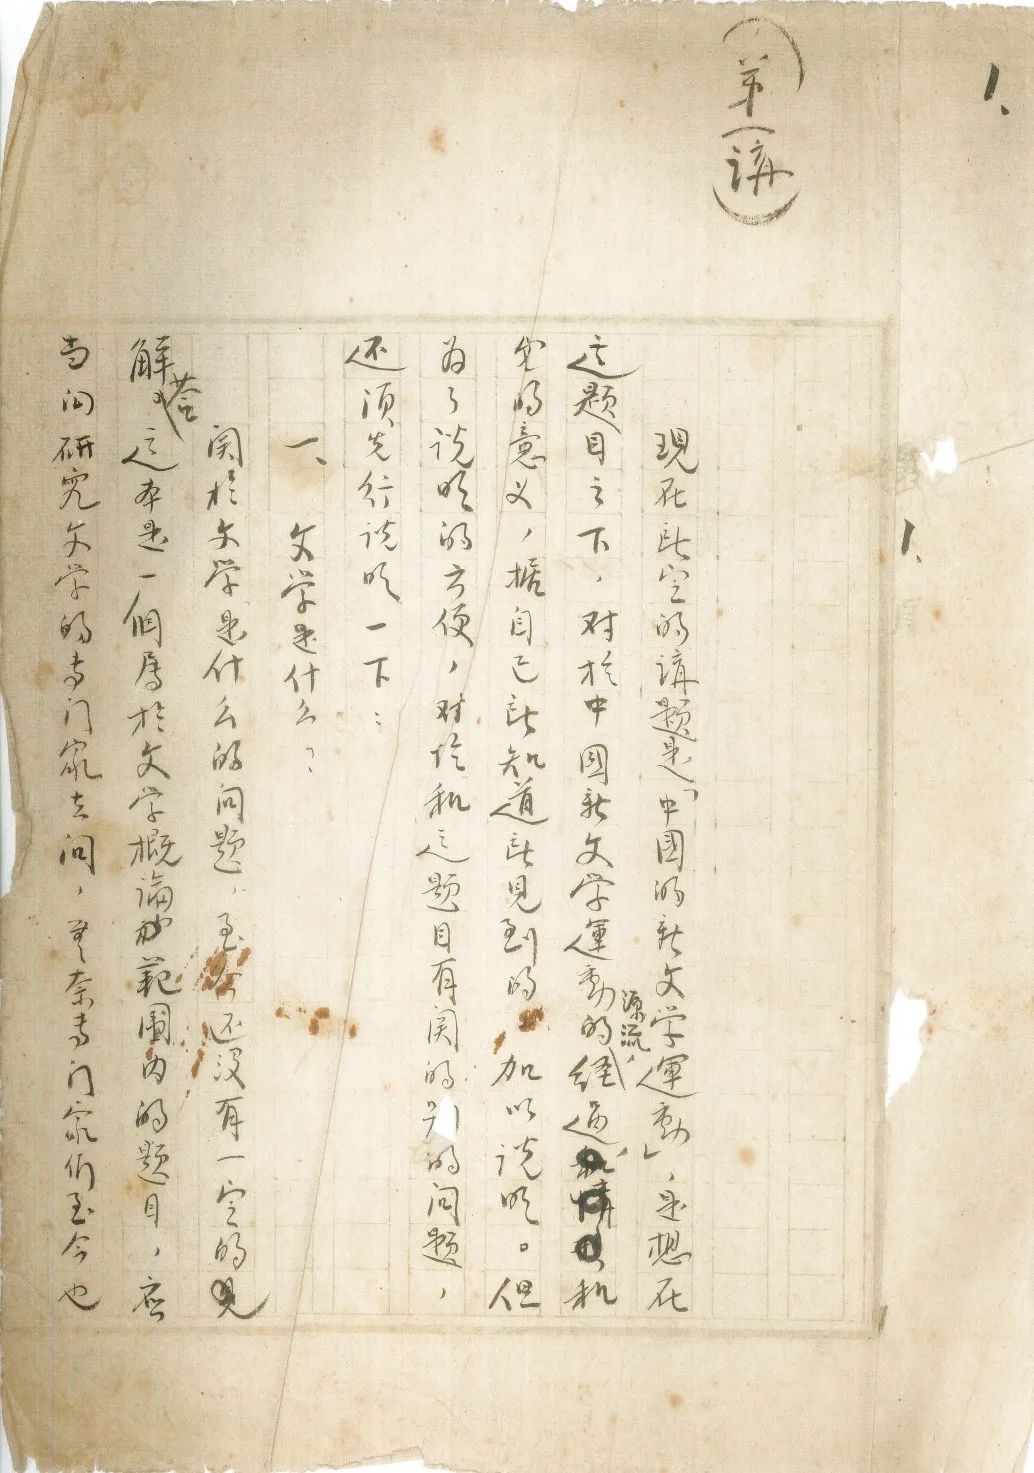 1、
（第一講）
1、
現在所定的講題是「中國的新文学運動」，是想在
這題目之下，对於中國新文学運動的源流，経過，和
它的意义，據自己所知道所見到的加以说明。但
为了说明的方便，对於和這题目有関的别的问题，
还须先行说明一下：
一、文学是什么？
関於文学是什么的问题，至今还没有一定的
解答。這本是一個属於文学概論範圍内的题目，应
当向研究文学的专门家去问，无奈专门家们至今也